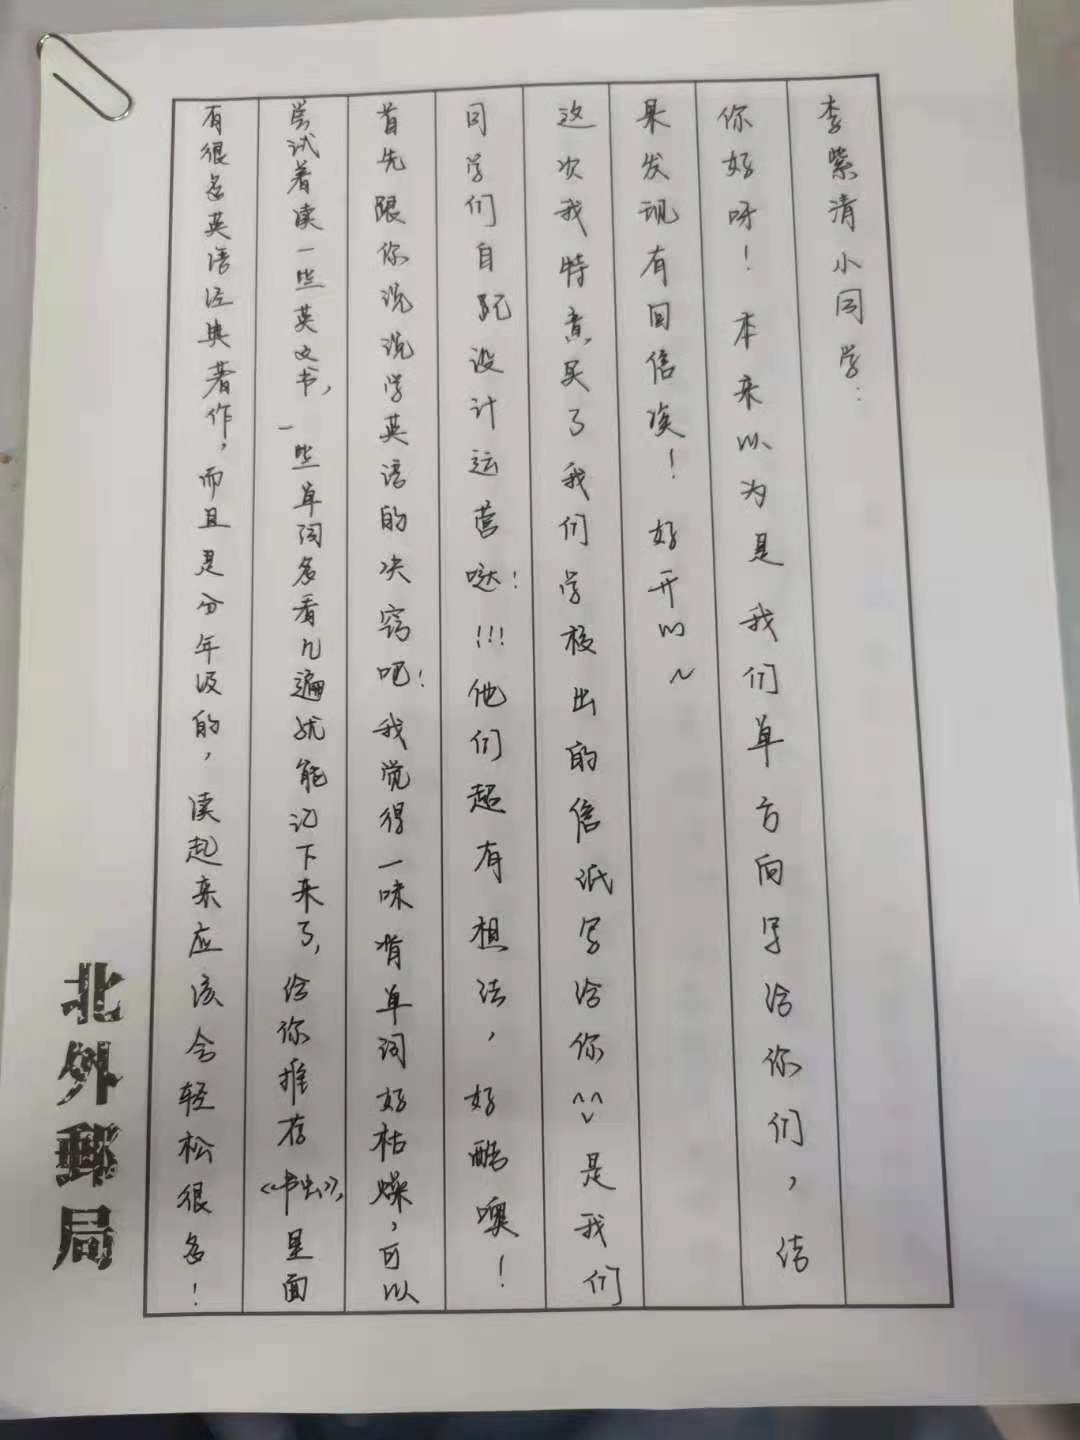 李紫清小同学：
你好呀！本来以为是我们单方向写给你们，结
果发现有回信诶！好开心~
这次我特意买了我们学校出的信纸写给你^^是我们
同学们自己设计运营哒！!!!他们超有想法，好酷噢！
首先跟你说说学英语的决窍吧！我觉得一味背单词好枯燥，可以
尝试着读一些英文书，一些单词多看几遍就能记下来了，给你推荐《书虫》，里面
有很多英语经典著作，而且是分年级的，读起来应该会轻松很多！
北外郵局